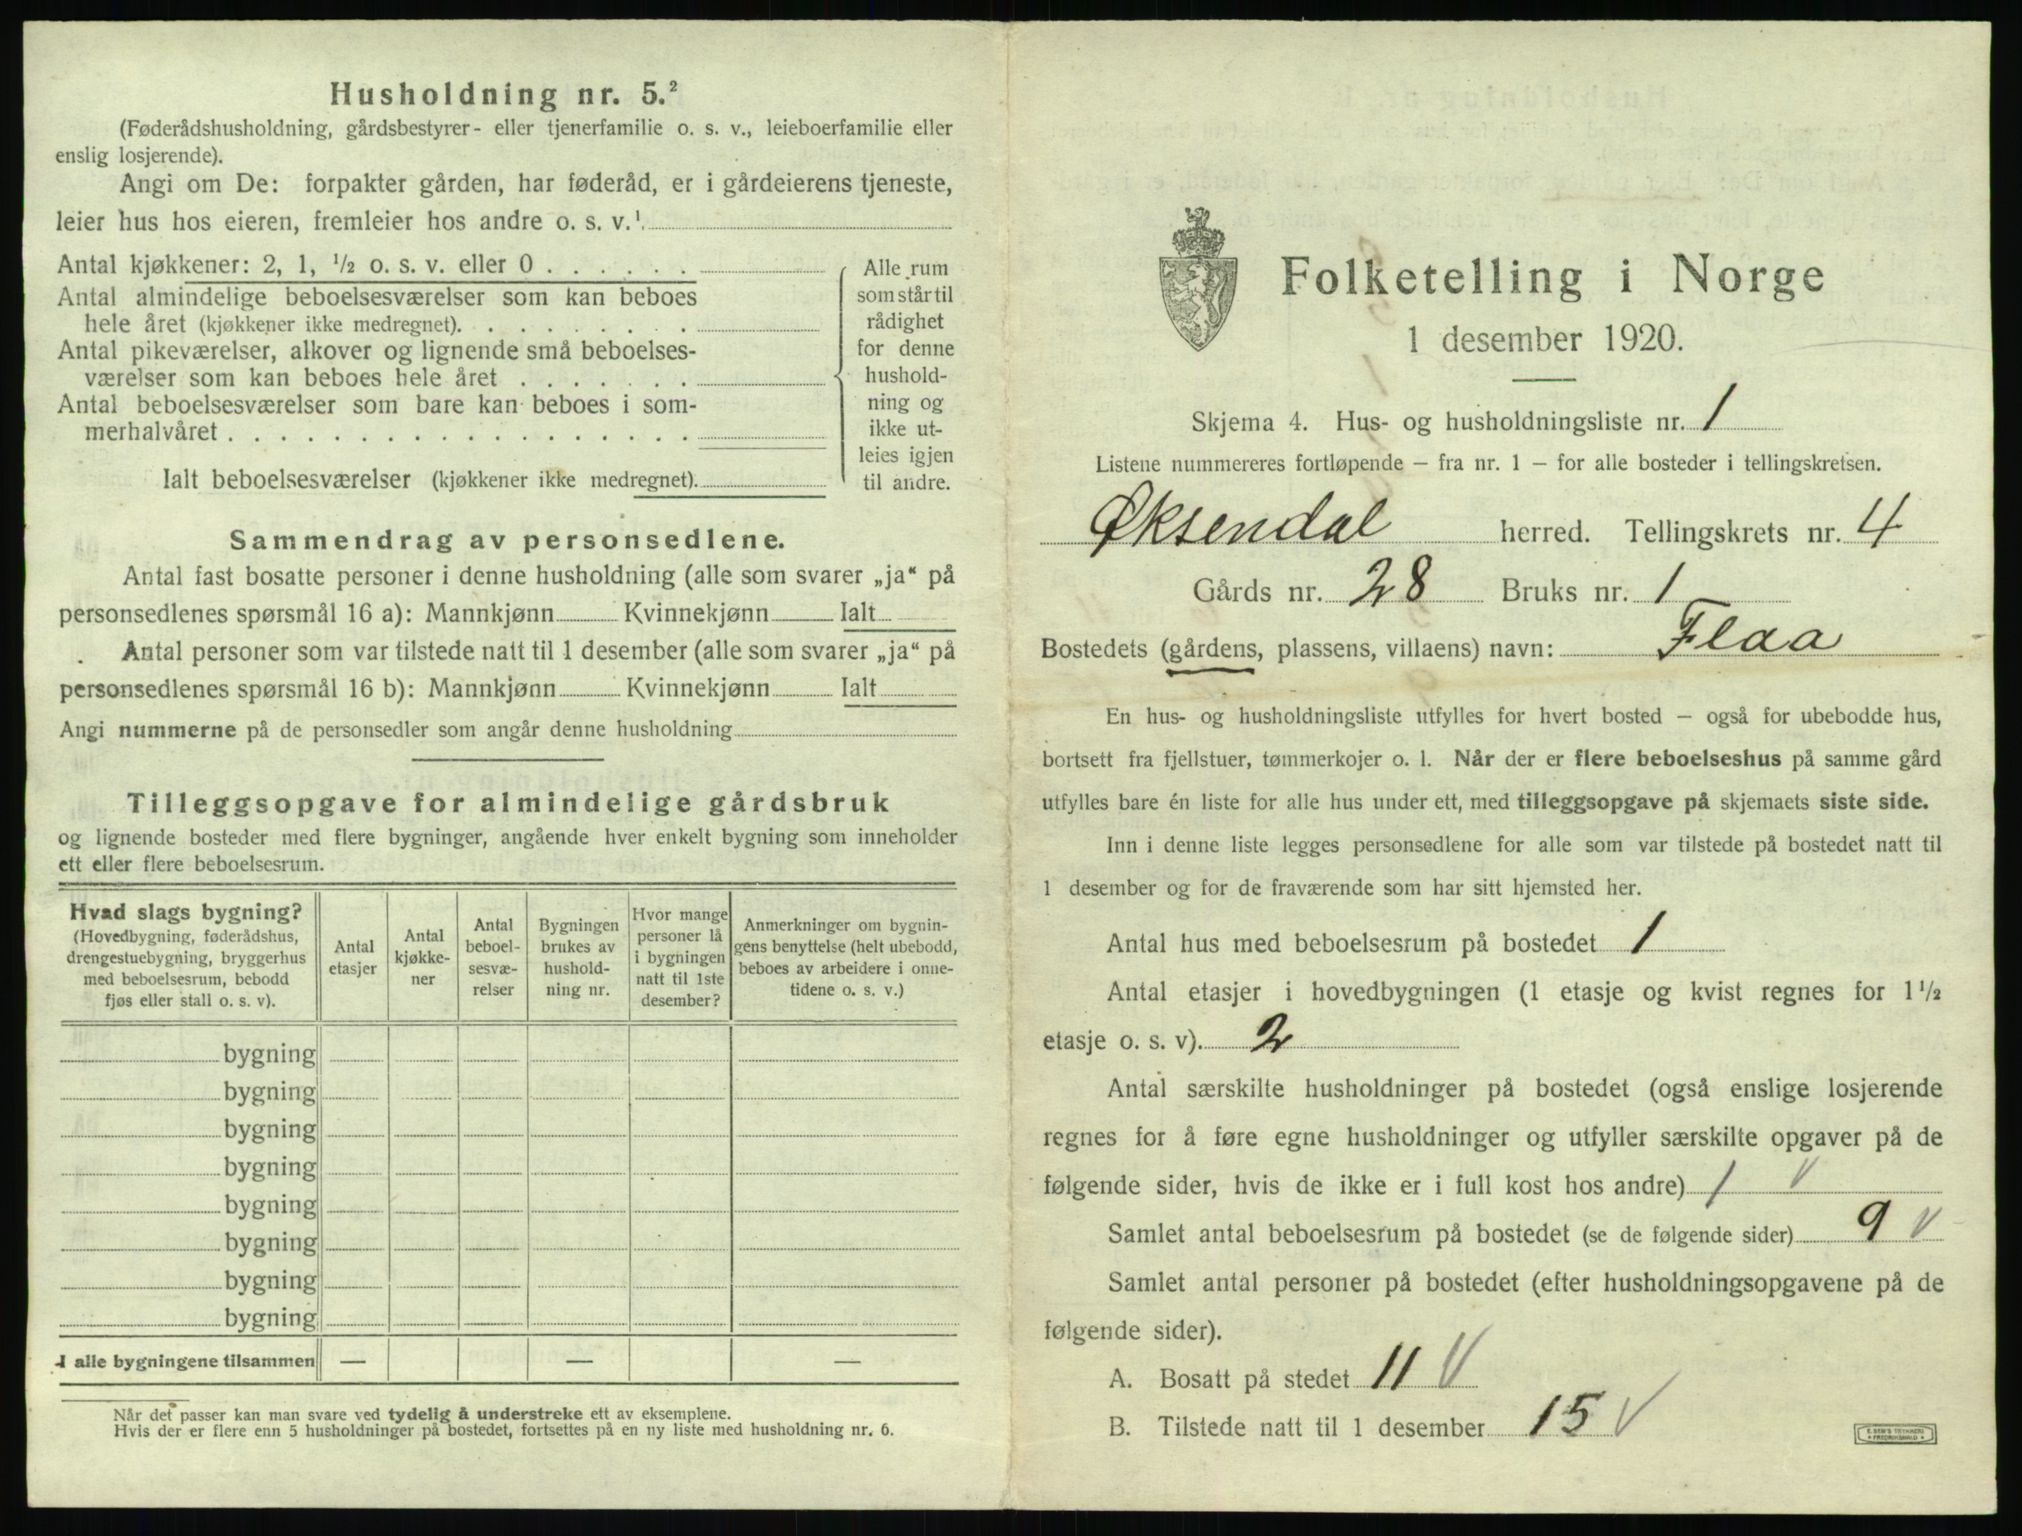 Husholdning nr. 5.²
(Føderådshusholdning, gårdsbestyrer- eller tjenerfamilie o. s. v., leieboerfamilie eller
enslig losjerende).
Angi om De: forpakter gården, har føderåd, er i gårdeierens tjeneste,
leier hus hos eieren, fremleier hos andre o. s. v.¹
Antal kjøkkener: 2, 1, ½ o. s. v. eller 0 . . . . . .
Antal almindelige beboelsesværelser som kan beboes
hele året (kjøkkener ikke medregnet). . . . . . . . .
Antal pikeværelser, alkover og lignende små beboelses-
værelser som kan beboes hele året . . . . . . .
Antal beboelsesværelser som bare kan beboes i som-
merhalvåret . . . . . . . . . . . . . . . . . .
Ialt beboelsesværelser (kjøkkener ikke medregnet).
Alle rum
som står til
rådighet
for denne
hushold-
ning og
ikke ut-
leies igjen
til andre.
Sammendrag av personsedlene.
Antal fast bosatte personer i denne husholdning (alle som svarer „ja“ på
personsedlenes spørsmål 16 a): Mannkjønn Kvinnekjønn Ialt
Antal personer som var tilstede natt til 1 desember (alle som svarer „ja“ på
personsedlenes spørsmål 16 b): Mannkjønn Kvinnekjønn Ialt
Angi nummerne på de personsedler som angår denne husholdning
Tilleggsopgave for almindelige gårdsbruk
og lignende bosteder med flere bygninger, angående hver enkelt bygning som inneholder
ett eller flere beboelsesrum.
Hvad slags bygning?
(Hovedbygning, føderådshus,
drengestuebygning, bryggerhus
med beboelsesrum, bebodd
fjøs eller stall o. s. v).
Antal
etasjer
Antal
kjøkke-
ner
Antal
beboel-
sesvæ-
relser
Bygningen
brukes av
hushold-
ning nr.
Hvor mange
personer lå
i bygningen
natt til 1ste
desember?
Anmerkninger om bygnin-
gens benyttelse (helt ubebodd,
beboes av arbeidere i onne-
tidene o. s. v.)
bygning
bygning
bygning
bygning
bygning
bygning
bygning
bygning
I alle bygningene tilsammen — — —
Når det passer kan man svare ved tydelig å understreke ett av eksemplene.
Hvis der er flere enn 5 husholdninger på bostedet, fortsettes på en ny liste med husholdning nr. 6.
Folketelling i Norge
1 desember 1920.
Skjema 4. Hus- og husholdningsliste nr. 1
Listene nummereres fortløpende — fra nr. 1 — for alle bosteder i tellingskretsen.
Øksendal herred. Tellingskrets nr. 4
Gårds nr. 28 Bruks nr. 1
Bostedets (gårdens, plassens, villaens) navn: Flaa
En hus- og husholdningsliste utfylles for hvert bosted — også for ubebodde hus,
bortsett fra fjellstuer, tømmerkojer o. l. Når der er flere beboelseshus på samme gård
utfylles bare én liste for alle hus under ett, med tilleggsopgave på skjemaets siste side.
Inn i denne liste legges personsedlene for alle som var tilstede på bostedet natt til
1 desember og for de fraværende som har sitt hjemsted her.
Antal hus med beboelsesrum på bostedet 1
Antal etasjer i hovedbygningen (1 etasje og kvist regnes for 1½
etasje o. s. v). 2
Antal særskilte husholdninger på bostedet (også enslige losjerende
regnes for å føre egne husholdninger og utfyller særskilte opgaver på de
følgende sider, hvis de ikke er i full kost hos andre) 1 V
Samlet antal beboelsesrum på bostedet (se de følgende sider) 9 V
Samlet antal personer på bostedet (efter husholdningsopgavene på de
følgende sider).
A. Bosatt på stedet 11 V
B. Tilstede natt til 1 desember 15 V
E. SEM'S TRYKKERI
FREDRIKSHALD